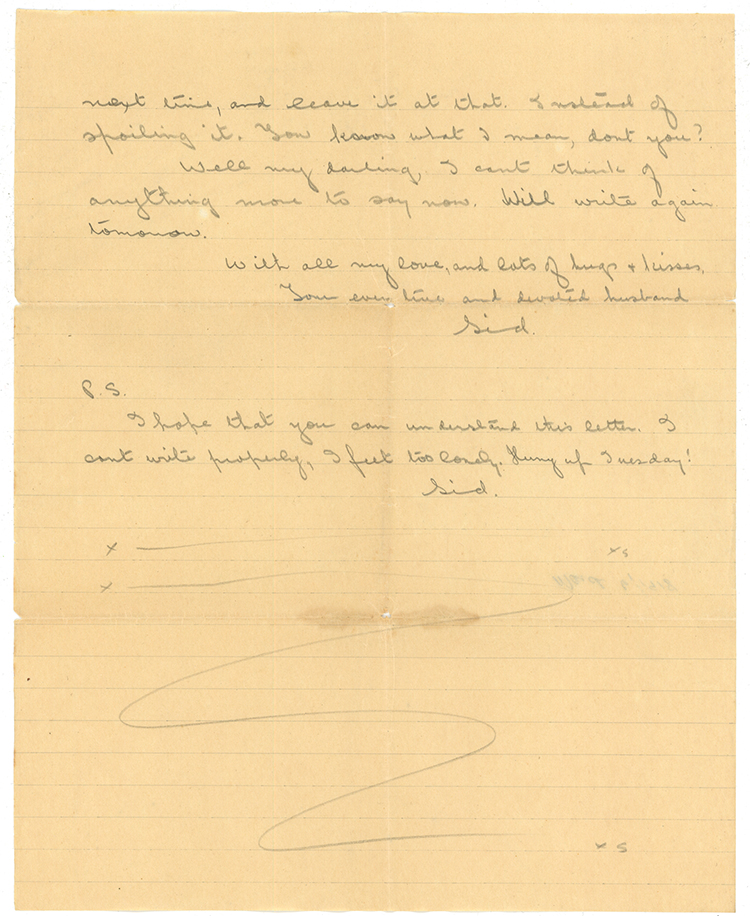 next time, and leave it at that. Instead of
spoiling it. You know what I mean, dont you?
Well my darling, I cant think of
anything more to say now. Will write again
tomorrow.
With all my love, and lots of hugs + kisses,
Your ever true and devoted husband
Sid.
P.S.
I hope that you can understand this letter. I
cant write properly, I feel too lonely. Hurry up Tuesday!
Sid.
x xs
x
x s